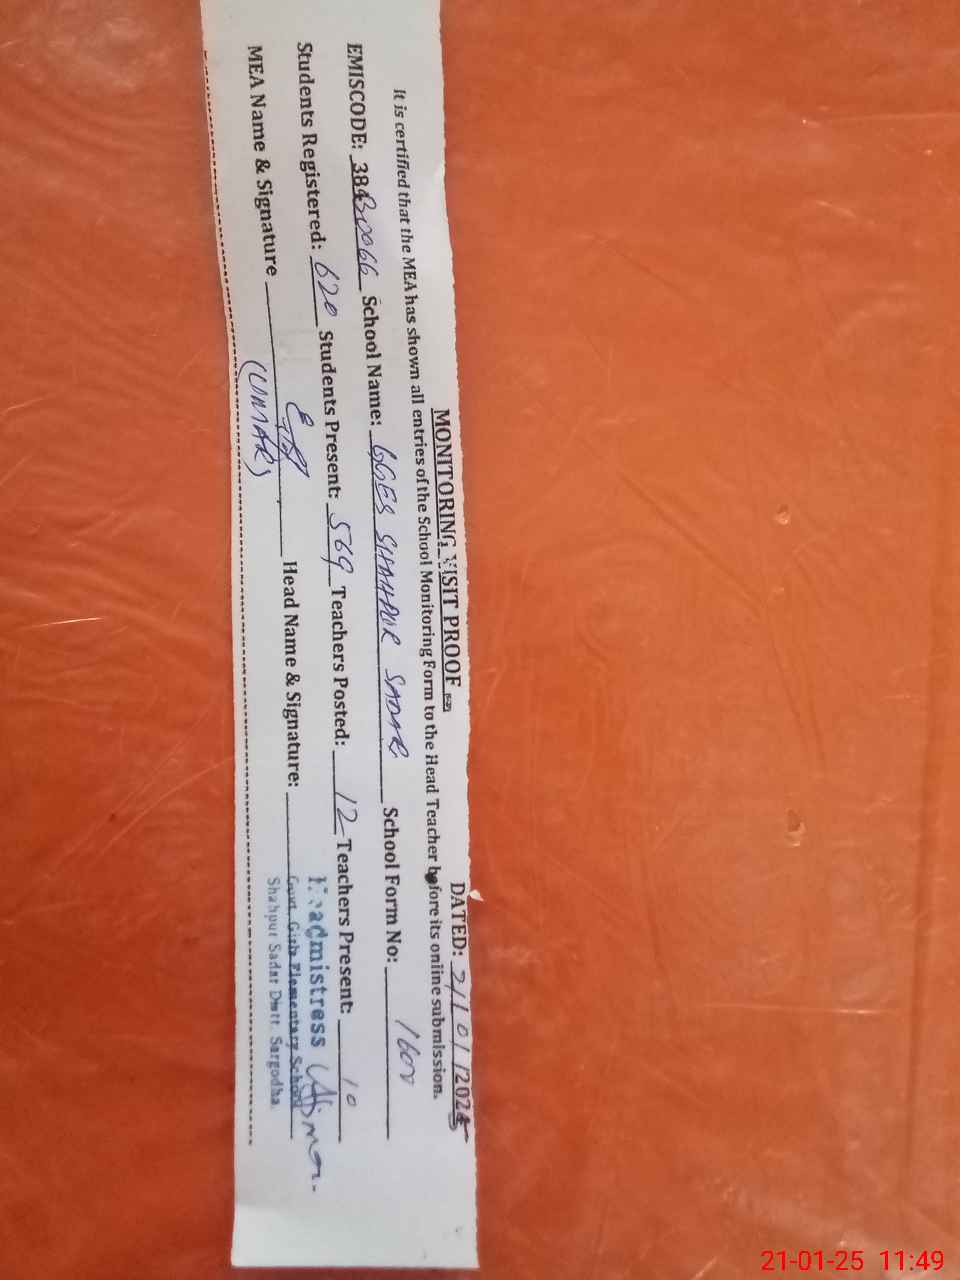 MONITORING VISIT PROOF
DATED: 21/01/2025
It is certified that the MEA has shown all entries of the School Monitoring Form to the Head Teacher before its online submission.
EMISCODE: 38430066 School Name: GGES SHAHPUR SADAR School Form No:
Students Registered: 620 Students Present: 569 Teachers Posted: 12 Teachers Present: 10
MEA Name & Signature Head Name & Signature:
(UMAR)
Headmistress
Govt. Girls Elementary School
Shahpur Sadar Distt. Sargodha.
21-01-25 11:49